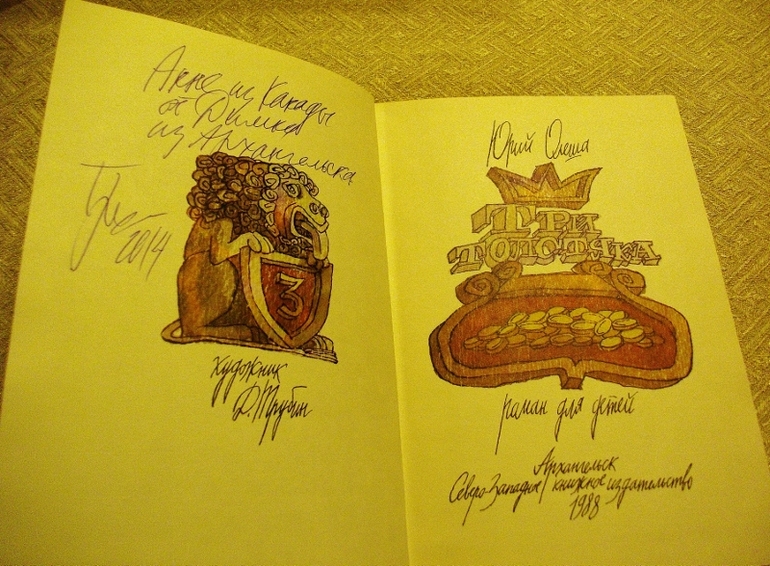 Анне из Канады
от Димки
из Архангельска
2014
3
художник
Д. Трубин
Юрий Олеша
ТРИ
ТОЛСТЯКА
роман для детей
Архангельск
Северо-Западное книжное издательство
1988